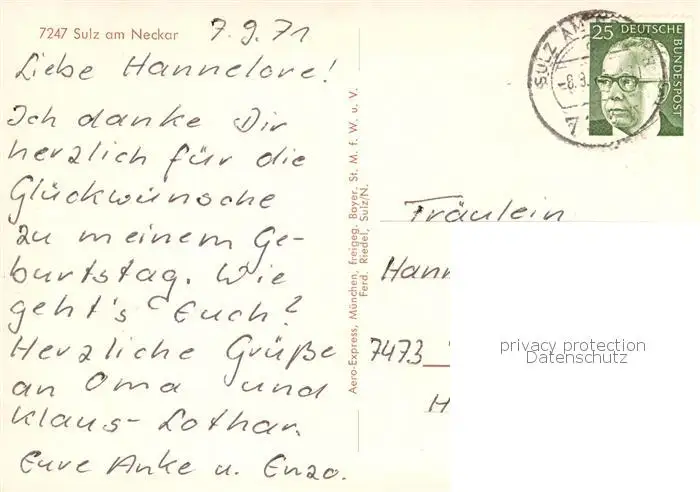 7247 Sulz am Neckar
7.9.71
Liebe Hannelore!
Ich danke Dir
herzlich für die
Glückwünsche
zu meinem Ge-
burtstag. Wie
geht's Euch?
Herzliche Grüße
an Oma und
Klaus-Lothar.
Eure Anke u. Enzo.
Aero-Express, München, freigeg. Boyer. St. M. f. W. u. V.
Ferd. Riedel, Sulz/N.
SULZ AM
-8.9.
25 DEUTSCHE
BUNDESPOST
Fräulein
Hann
7473
H
privacy protection
Datenschutz